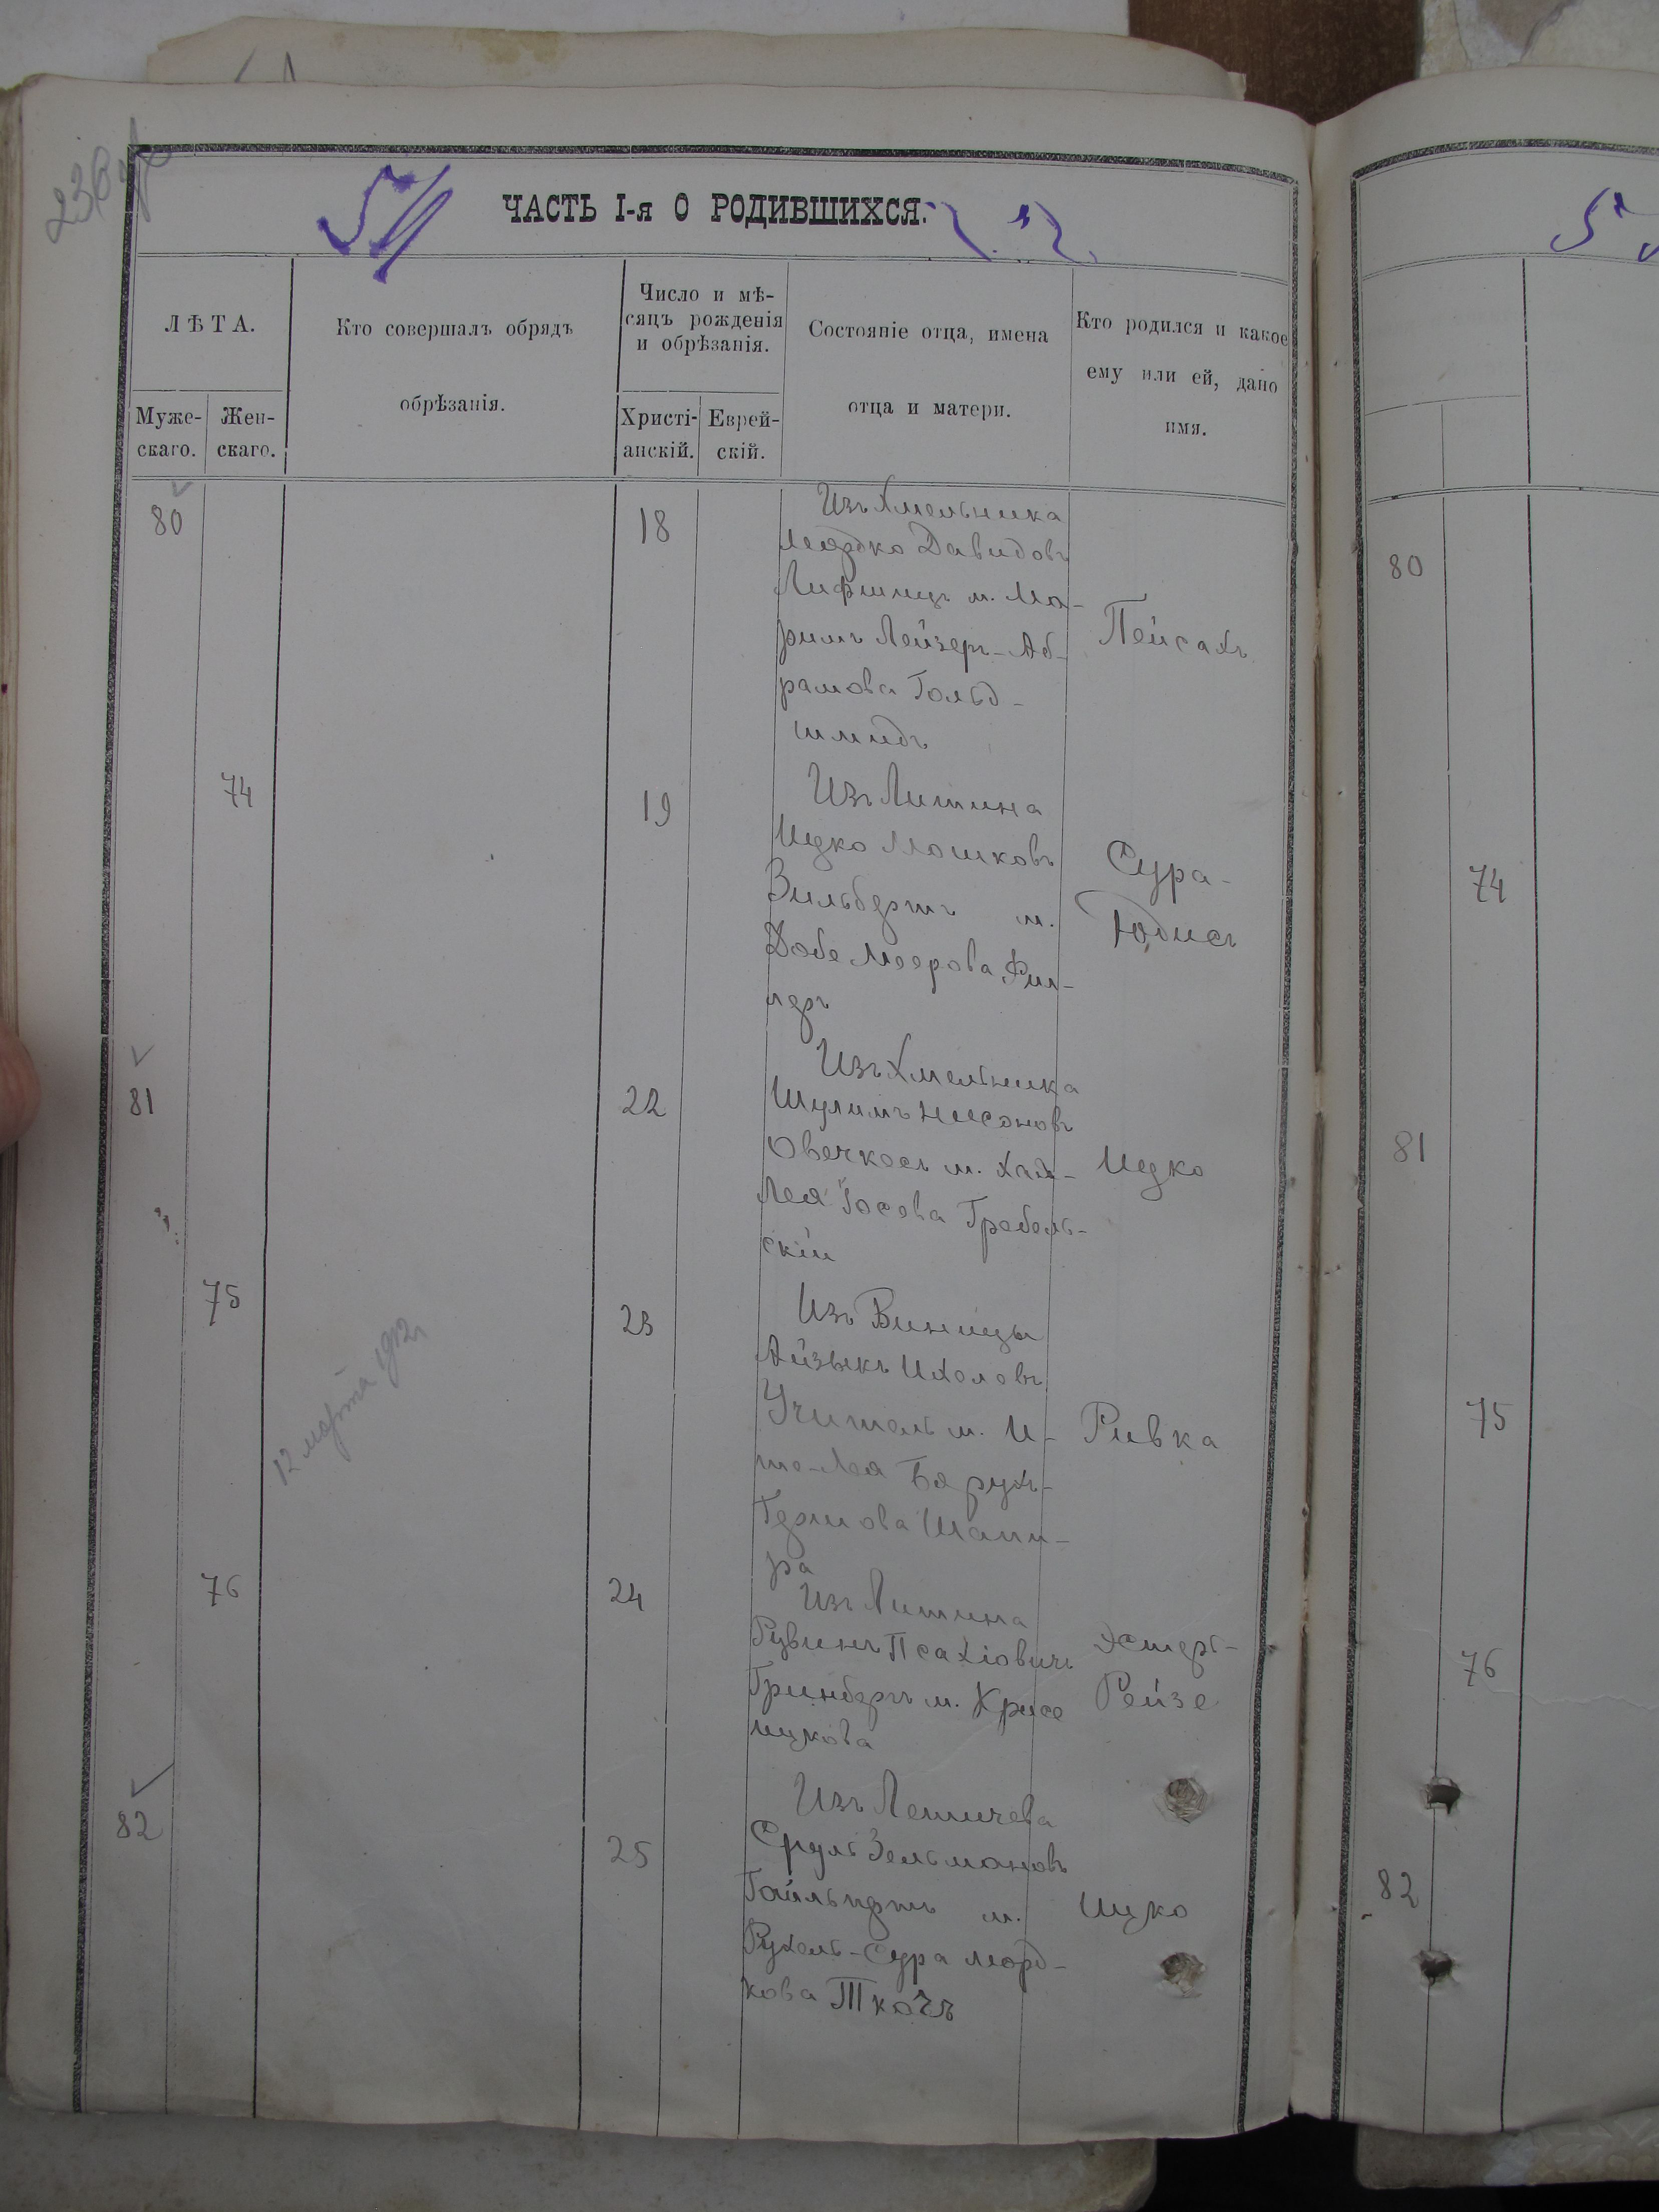 ЧАСТЬ I-я О РОДИВШИХСЯ.
ЛѢТА.
Муже-
скаго.
Жен-
скаго.
Кто совершалъ обрядъ
обрѣзанія.
Число и мѣ-
сяцъ рожденія
и обрѣзанія.
Христі-
анскій.
Еврей-
скій.
Состояніе отца, имена
отца и матери.
Кто родился и какое
ему или ей, дано
имя.
80
18
Изъ Хмельника
Мордко Давидовъ
Лифшицъ м. Ма-
римъ Лейзеръ-Аб-
рамова Гольд-
шмидъ
Пейсахъ
74
19
Изъ Литина
Ицко Мошковъ
Зильбертъ м.
Добе Меерова Фил-
леръ
Сура-
Юдисъ
81
22
Изъ Хмельника
Шулимъ Нисоновъ
Овечкосъ м. Хая-
Лея Іосева Гребель-
скій
Ицко
75
23
Изъ Виницы
Айзыкъ Ихеловъ
Учитель м. И-
те-Лея Барухъ-
Гершова Шапи-
ра
Ривка
12 марта 1912 г
76
24
Изъ Литина
Рувинъ Псахіовичъ
Гринбергъ м. Крисе
Ицкова
Эстеръ-
Рейзе
82
25
Изъ Летичева
Сруль Зельмановъ
м.
Рухель-Сура Морд-
кова Ткачъ
Ицко
80
74
81
75
76
82